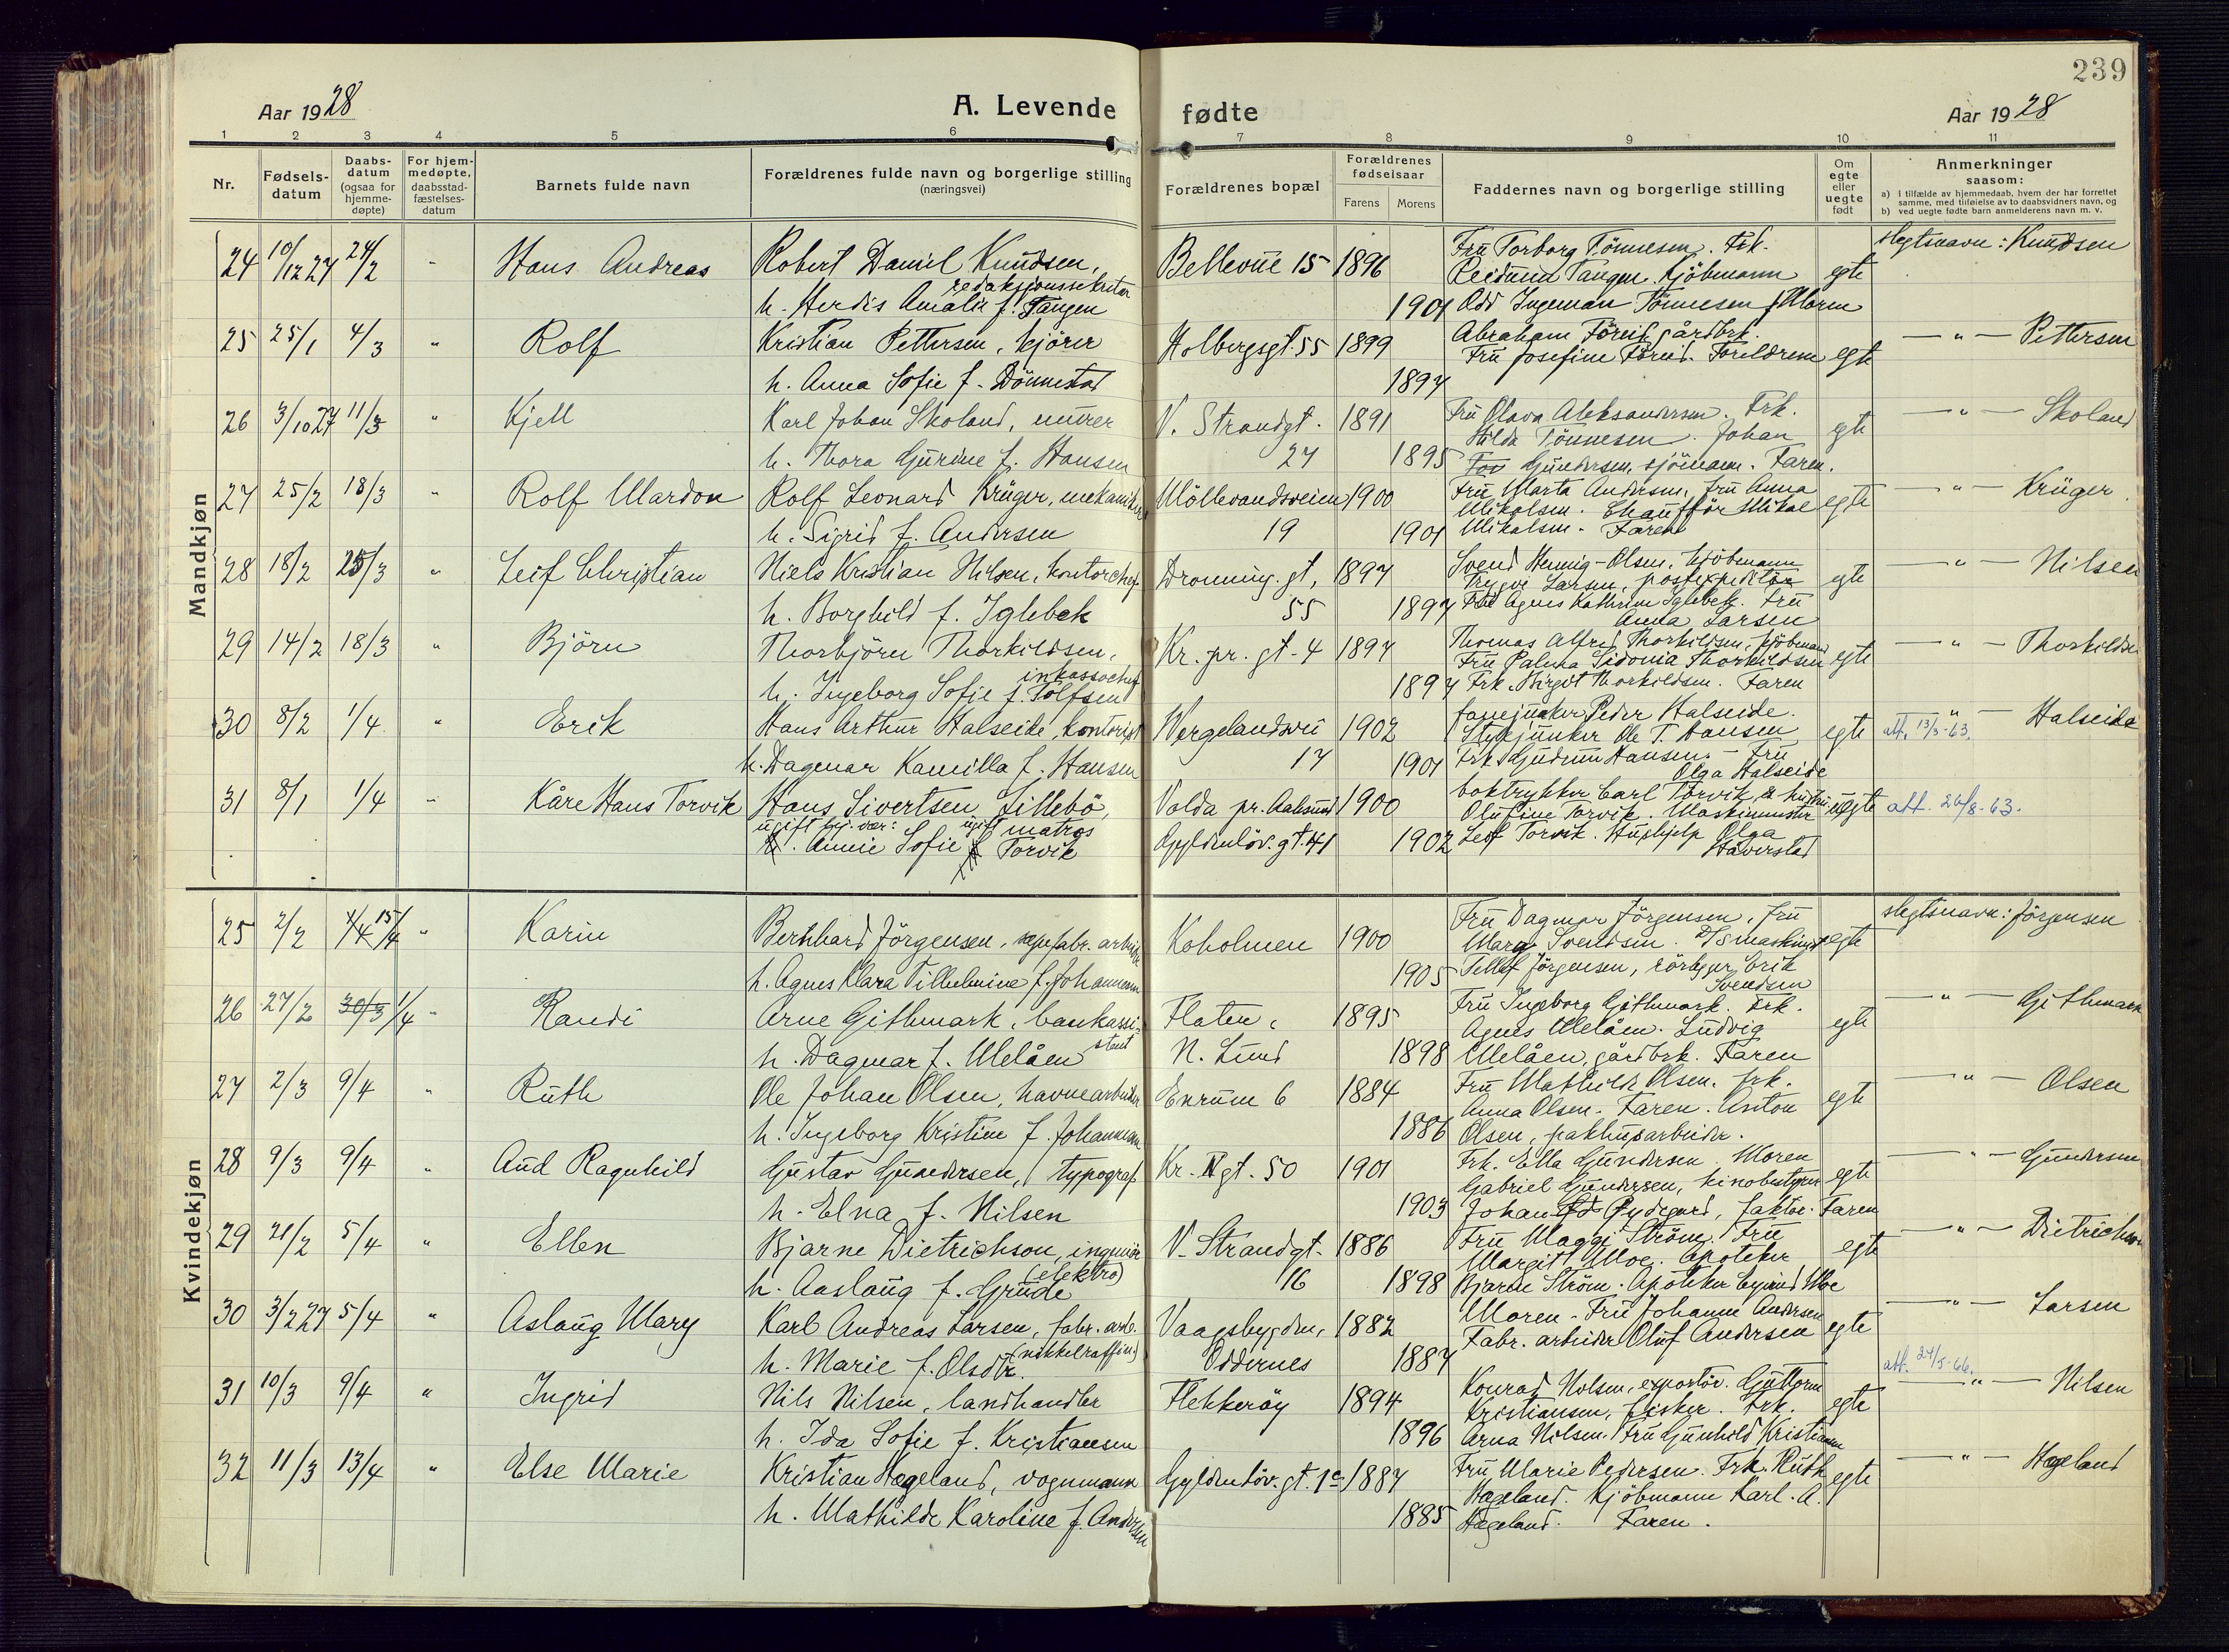 239
Aar 1928
A. Levende
fødte
Aar 1928
1 2 3 4 5 6 7 8 9 10 11
Nr.
Fødsels-
datum
Daabs-
datum
(ogsaa for
hjemme-
døpte)
For hjem-
medøpte,
daabsstad-
fæstelses-
datum
Barnets fulde navn
Forældrenes fulde navn og borgerlige stilling
(næringsvei)
Forældrenes bopæl
Forældrenes
fødselsaar
Farens Morens
Faddernes navn og borgerlige stilling
Om
egte
eller
uegte
født
Anmerkninger
saasom:
a) i tilfælde av hjemmedaab, hvem der har forrettet
samme, med tilføielse av to daabsvidners navn, og
b) ved uegte fødte barn anmelderens navn m. v.
Mandkjøn
24 10/12 27 24/2 - Hans Andreas
Robert Daniel Knudsen,
redaksjonssekretær
h. Herdis Amalie f. Tangen
Bellevue 15 1896
1901
Fru Torborg Tönnesen. Frk.
Reidunn Tangen. Kjöbmann
Odd Ingeman Tönnesen. Moren
egte
slegtsnavn: Knudsen
25 25/1 4/3 " Rolf
Kristian Pettersen, kjörer
h. Anna Sofie f. Dönnestad
Holbergsgt. 55 1899
1897
Abraham gårdbrk.
Fru Josefine Foreldrene
egte
— " — Pettersen
26 3/10 27 11/3 " Kjell
Karl Johan Skoland, murer
h. Thora Gurine f. Hansen
V. Strandgt. 1891
27 1895
Fru Olava Aleksandersen. Frk.
Hilda Tönnesen. Johan
Tov Gundersen, sjömann. Faren.
egte
— " — Skoland
27 25/2 18/3 " Rolf Mardon
Rolf Leonard Krüger, mekaniker
h. Sigrid f. Andersen
Möllevandsveien 1900
19 1901
Fru Marta Andersen, Fru Anna
Mikalsen. Chauffør Mikal
Mikalsen. Faren
egte
— " — Krüger
28 18/2 25/3 " Leif Christian
Niels Kristian Nilsen, kontorchef
h. Borghild f. Iglebek
Dronning. gt, 1897
55 1897
Svend Hennig-Olsen, kjöbmann
Trygve Larsen, postexpeditör
Fru Agnes Kathrine Iglebek. Fru
Anna Larsen
egte
— " — Nilsen
29 14/2 18/3 " Björn
Thorbjörn Thorkildsen,
inkassochef
h. Ingeborg Sofie f. Tolfsen
Kr. pr. gt. 4 1897
1897
Thomas Alfred Thorkildsen, kjöbmand
Fru Palma Sidonia Thorkildsen
Frk. Birgit Thorkildsen. Faren
egte
— " — Thorkildsen
30 8/2 1/4 " Erik
Hans Arthur Halseide, kontorist
h. Dagmar Kamilla f. Hansen
Wergelandsvei 1902
17 1901
fanejunker Peder Halseide.
Stykjunker Ole T. Hansen
Frk. Gudrun Hansen. - Fru
Olga Halseide
egte
att. 13/3-63.
— " — Halseide
31 8/1 1/4 - Kåre Hans Torvik
Hans Sivertsen Lillebö,
ugift matros
ugift
h. Annie Sofie f. Torvik
Volda pr. Aalesund 1900
Gyldenlöv. gt. 41 1902
boktrykker Carl Torvik & hustru
Olufine Torvik. Maskinmester
Leif Torvik. Hushjelp Olga
Håverstad
uegte
att. 26/8-63.
Kvindekjøn
25 2/2 15/4 " Karin
Bernhard Jörgensen, arbeider
h. Agnes Klara Vilhelmine f. Johannesen
Koholmen 1900
1905
Fru Dagmar Jörgensen, Fru
Mary Svendsen. D/S maskinist
Tellef Jörgensen, rörlegger Erik
Svendsen
egte
slegtsnavn: Jörgensen
26 27/2 30/3 1/4 " Randi
Arne Githmark, bankassi-
stent
h. Dagmar f. Meläen
Flaten, 1895
N. Lund 1898
Fru Ingeborg Githmark. Frk.
Agnes Melåen. Ludvig
Melåen, gårdbrk. Faren
egte
— " — Githmark
27 2/3 9/4 " Ruth
Ole Johan Olsen, havnearbeider
h. Ingeborg Kristine f. Johannesen
Enrum 6 1884
1886
Fru Mathilde Olsen. frk.
Anna Olsen. Faren. Anton
Olsen, pakhusarbeider.
egte
— " — Olsen
28 9/3 9/4 " Aud Ragnhild
Gustav Gundersen, typograf
h. Elna f. Nilsen
Kr. IV gt. 50 1901
1903
Frk. Ella Gundersen. Moren
Gabriel Gundersen, kinobestyrer
Johan Fr. Rydgerd, faktor. Faren
egte
— " — Gundersen
29 21/2 5/4 " Ellen
Bjarne Dietrichson, ingeniör
(elektro)
h. Aaslaug f. Grude
V. Strandgt. 1886
16 1898
Fru Maggi Ström. Fru
Margit Moe. Apoteker
Bjarne Ström. Apoteker Eyvind Moe
egte
— " — Dietrichson
30 3/2 27 5/4 " Aslaug Mary
Karl Andreas Larsen, fabr. arb.
(nikkelraffin.)
h. Marie f. Olsdtr.
Vaagsbygden, 1882
Oddernes 1887
Moren. Fru Johanne Andersen
Fabr. arbeider Oluf Andersen
egte
— " — Larsen
31 10/3 9/4 " Ingrid
Nils Nilsen, landhandler
h. Ida Sofie f. Kristiansen
Flekkeröy 1894
1896
Konrad Nilsen, exportör. Guttorm
Kristiansen, fisker. Frk.
Arna Nilsen. Fru Gunhild Kristiansen
egte
att. 24/5-66.
— " — Nilsen
32 11/3 13/4 " Else Marie
Kristian Hageland, vognmann
h. Mathilde Karoline f. Andersen
Gyldenlöv. gt. 1c 1887
1885
Fru Marie Pedersen. Frk. Ruth
Hageland. Kjöbmann Karl. A.
Hageland. Faren.
egte
— " — Hageland